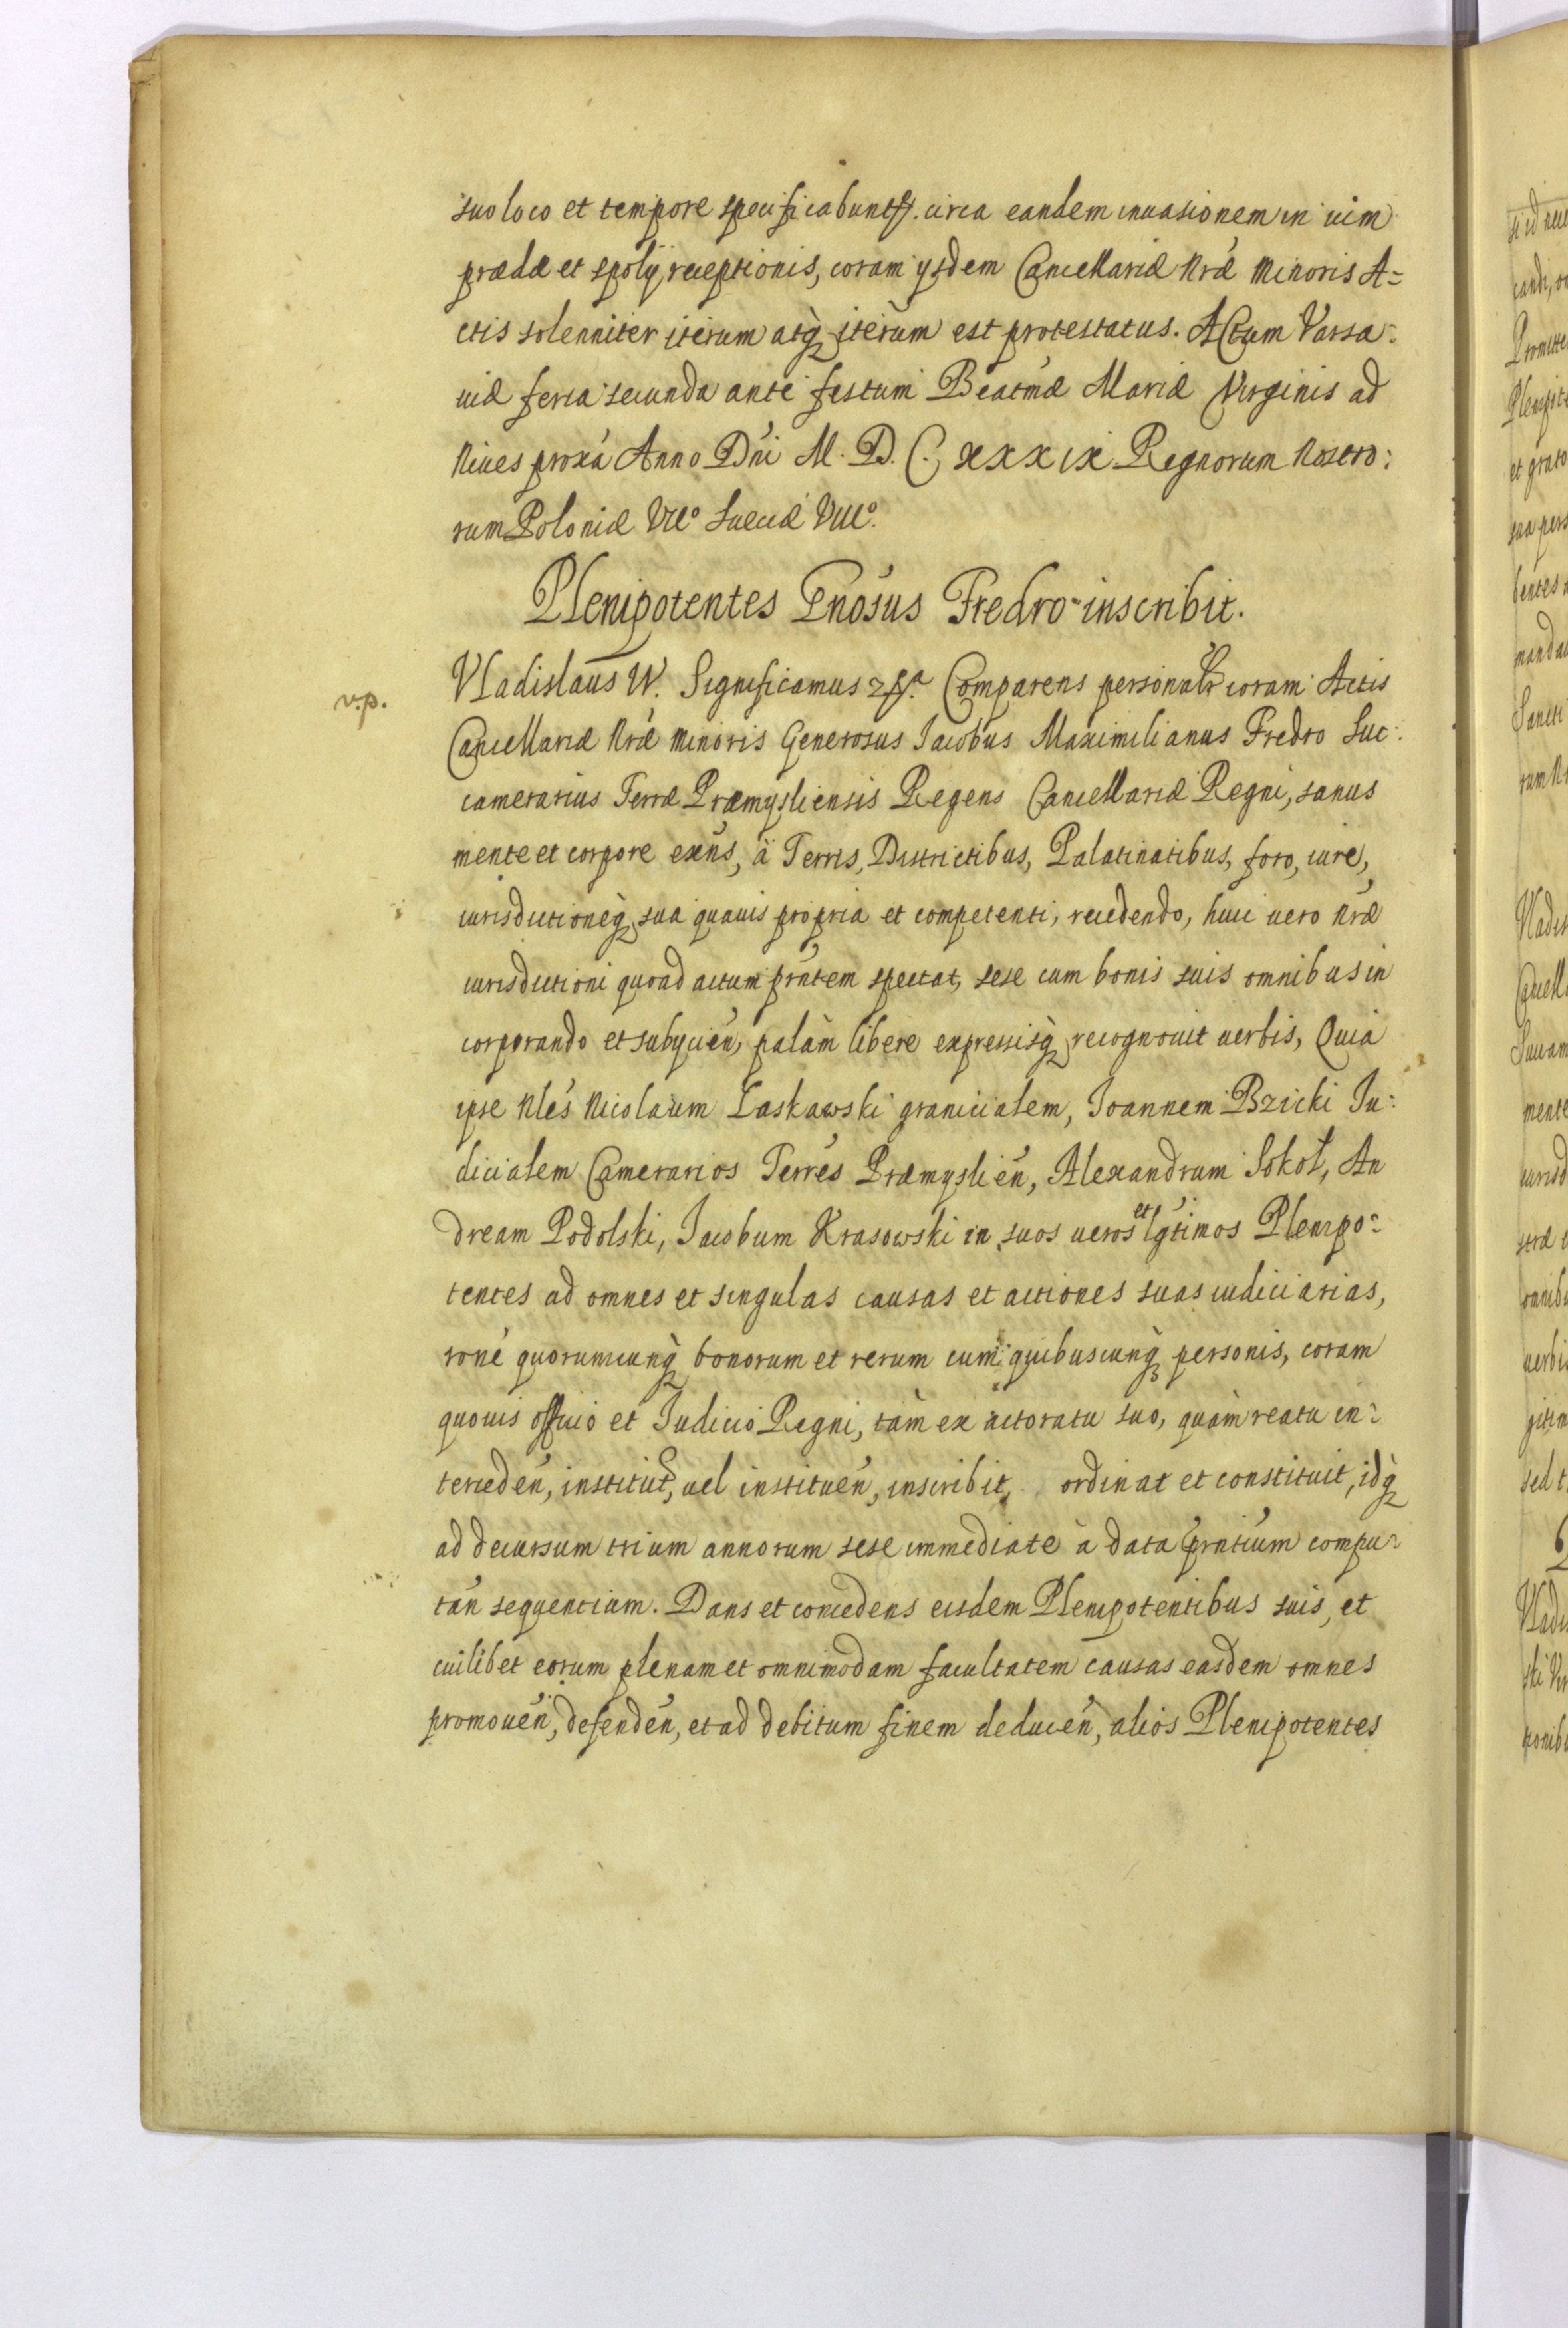 suo loco et tempore specificabuntr. circa eandem inuasionem in uim
prædæ et spolÿ receptionis, coram ÿsdem Cancellariæ Nræ Minoris A=
ctis solenniter iterum atq̀ iterùm est protestatus. Actum Varsa:
uiæ feria secunda ante festum Beatmæ Mariæ Virginis ad
Niues proxá Anno Dńi M. D. C. XXXIX Regnorum Nostro:
rum Poloniæ VIIº Sueciæ VIIIº.
Plenipotentes Gnósus Fredro inscribit.
v.p.
Vladislaus IV. Significamus Comparens personalr coram Actis
Cancellariæ Nræ Minoris Generosus Iacobus Maximilianus Fredro Suc:
camerarius Terræ Præmysliensis Regens Cancellariæ Regni, sanus
mente et corpore exńs, à Terris, Districtibus, Palatinatibus, foro, iure,
iurisdictioneq̀ sua quauis propria et competenti, recedendo, huic uero Nræ
iurisdictioni quoad actum prńtem spectat, sese cum bonis suis omnibus in
corporando et subÿcień, palàm libere expressisq̀ recognouit uerbis, Quia
ipse Nles Nicolaum Łaskawski granicialem, Ioannem Bzicki Iu:
dicialem Camerarios Terres Præmyslień, Alexandrum Sokoł, An
dream Podolski, Jacobum Krasowski in suos ueros et lgtimos Plenipo:
tentes ad omnes et singulas causas et actiones suas iudiciarias,
roné quorumcunq̀ bonorum et rerum cum quibuscunq̀ personis, coram
quouis officio et Iudicio Regni, tàm ex actoratu suo, quàm reatu in:
tercedeń, institut, uel institueń, inscribit, ordinat et constituit, idq̀
ad decursum trium annorum sese immediate à data prńtium compu:
tań sequentium. Dans et concedens eisdem Plenipotentibus suis, et
cuilibet eorum plenam et omnimodam facultatem causas easdem omnes
promoueń, defendeń, et ad debitum finem deduceń, alios Plenipotentes